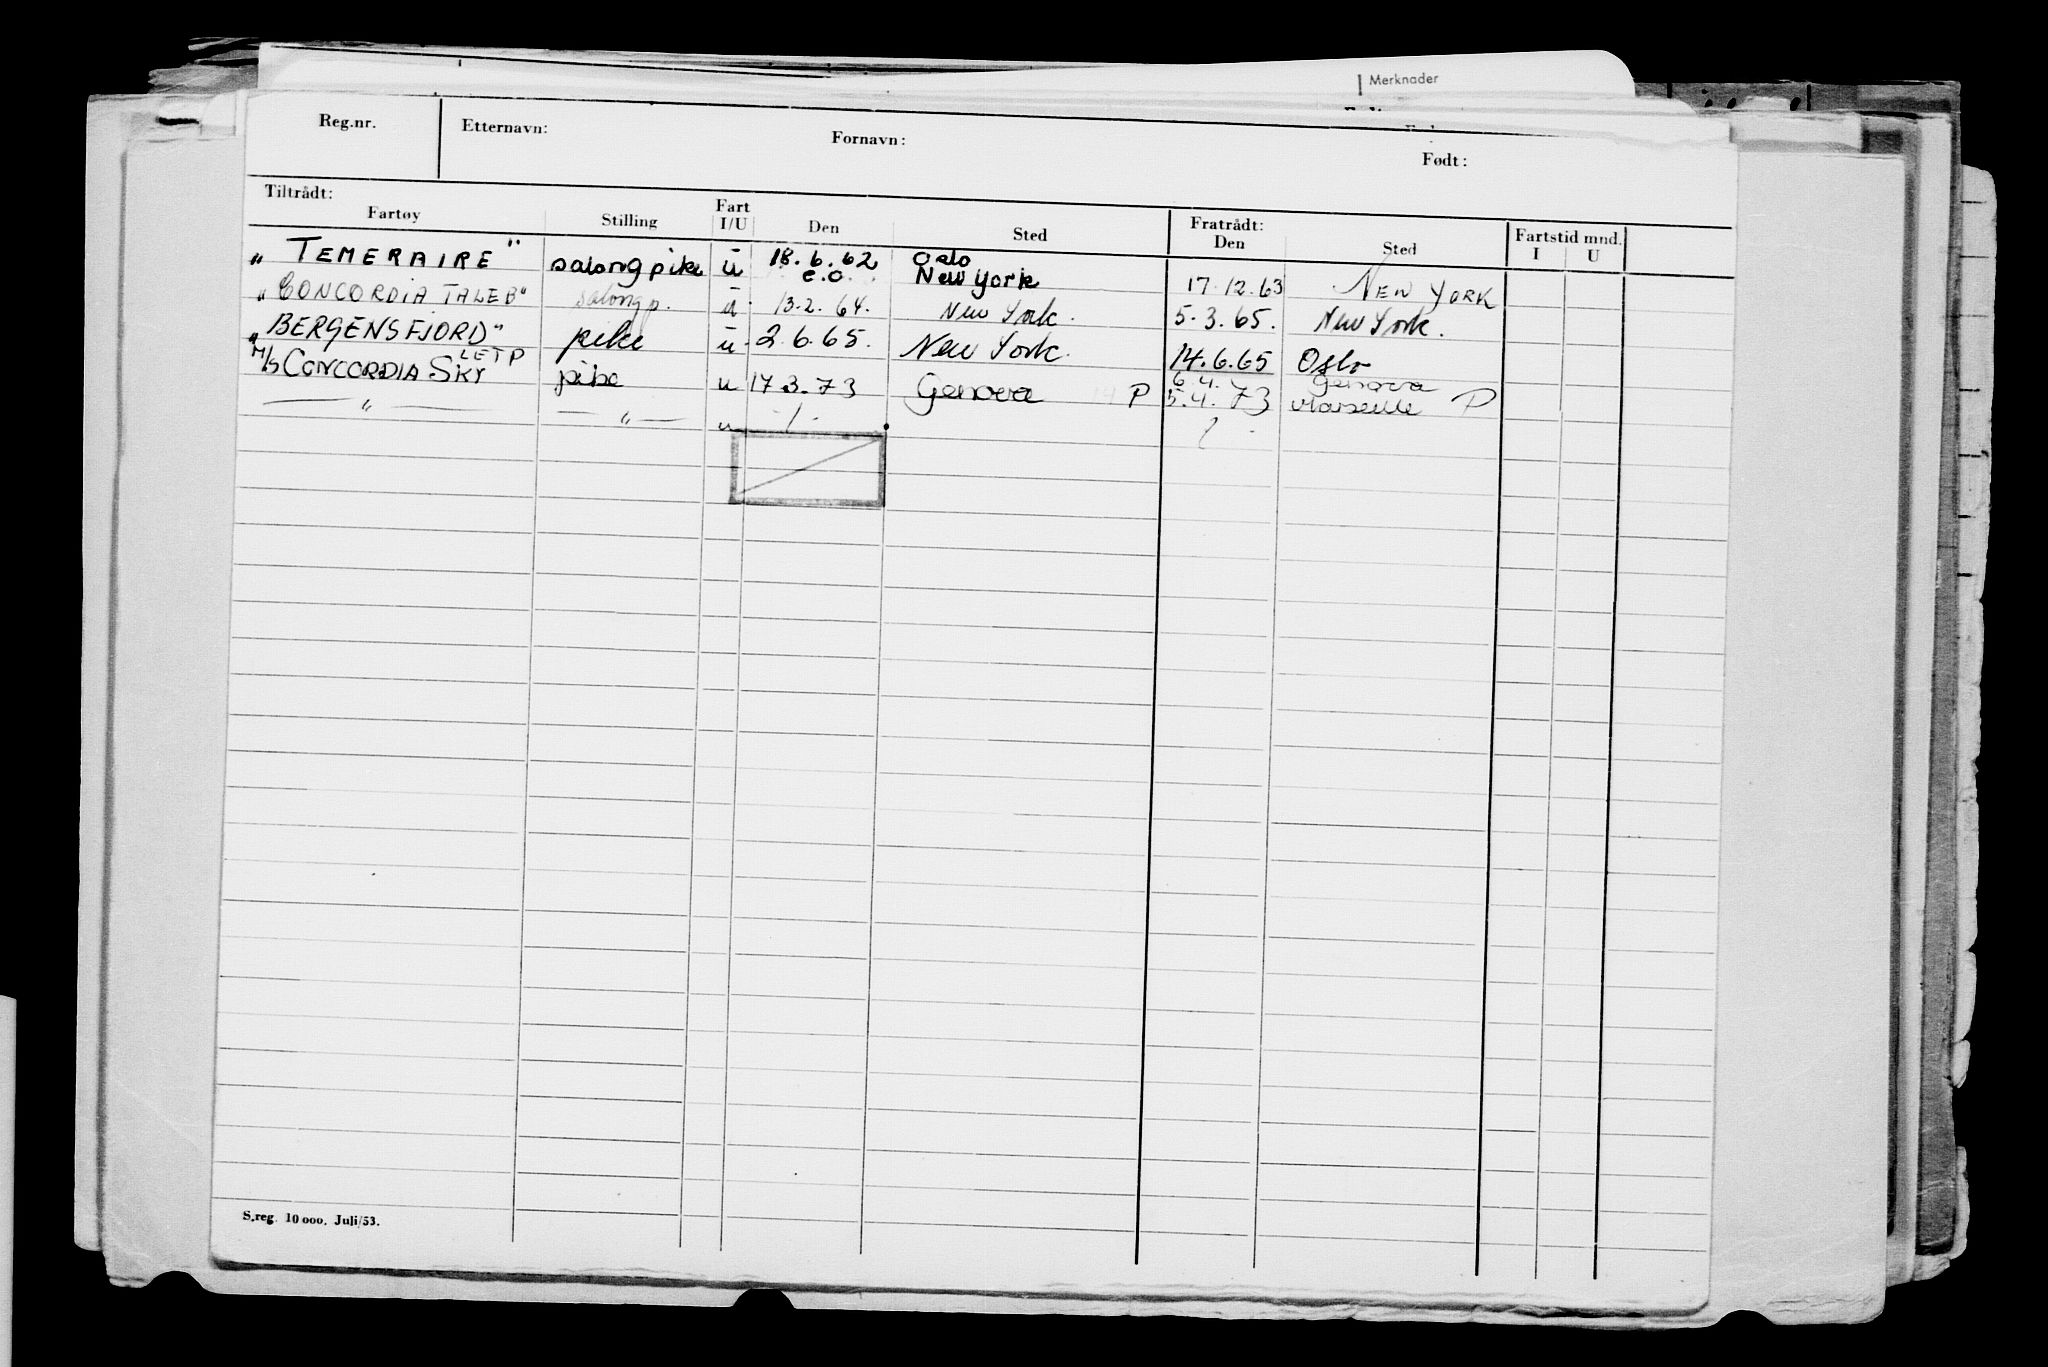 Merknader
Reg.nr. Etternavn: Fornavn: Født:
Tiltrådt: Fratrådt:
Fartøy Stilling Fart I/U Den Sted Den Sted Fartstid mnd. I U
„TEMERAIRE" salongpike u 18.6.62 Oslo
e.o. New York 17.12.63 NEW YORK
„CONCORDIA TALEB" salongp. u 13.2.64. New York. 5.3.65. New York.
„BERGENSFJORD" pike u 2.6.65. New York. 14.6.65 Oslo
LETP 6.4. Genova
M/S CONCORDIA SKY pike u 17.3.73 Genova P 5.4.73 Marseille P
— „ — — „ — u
S.reg. 10 000. Juli/53.